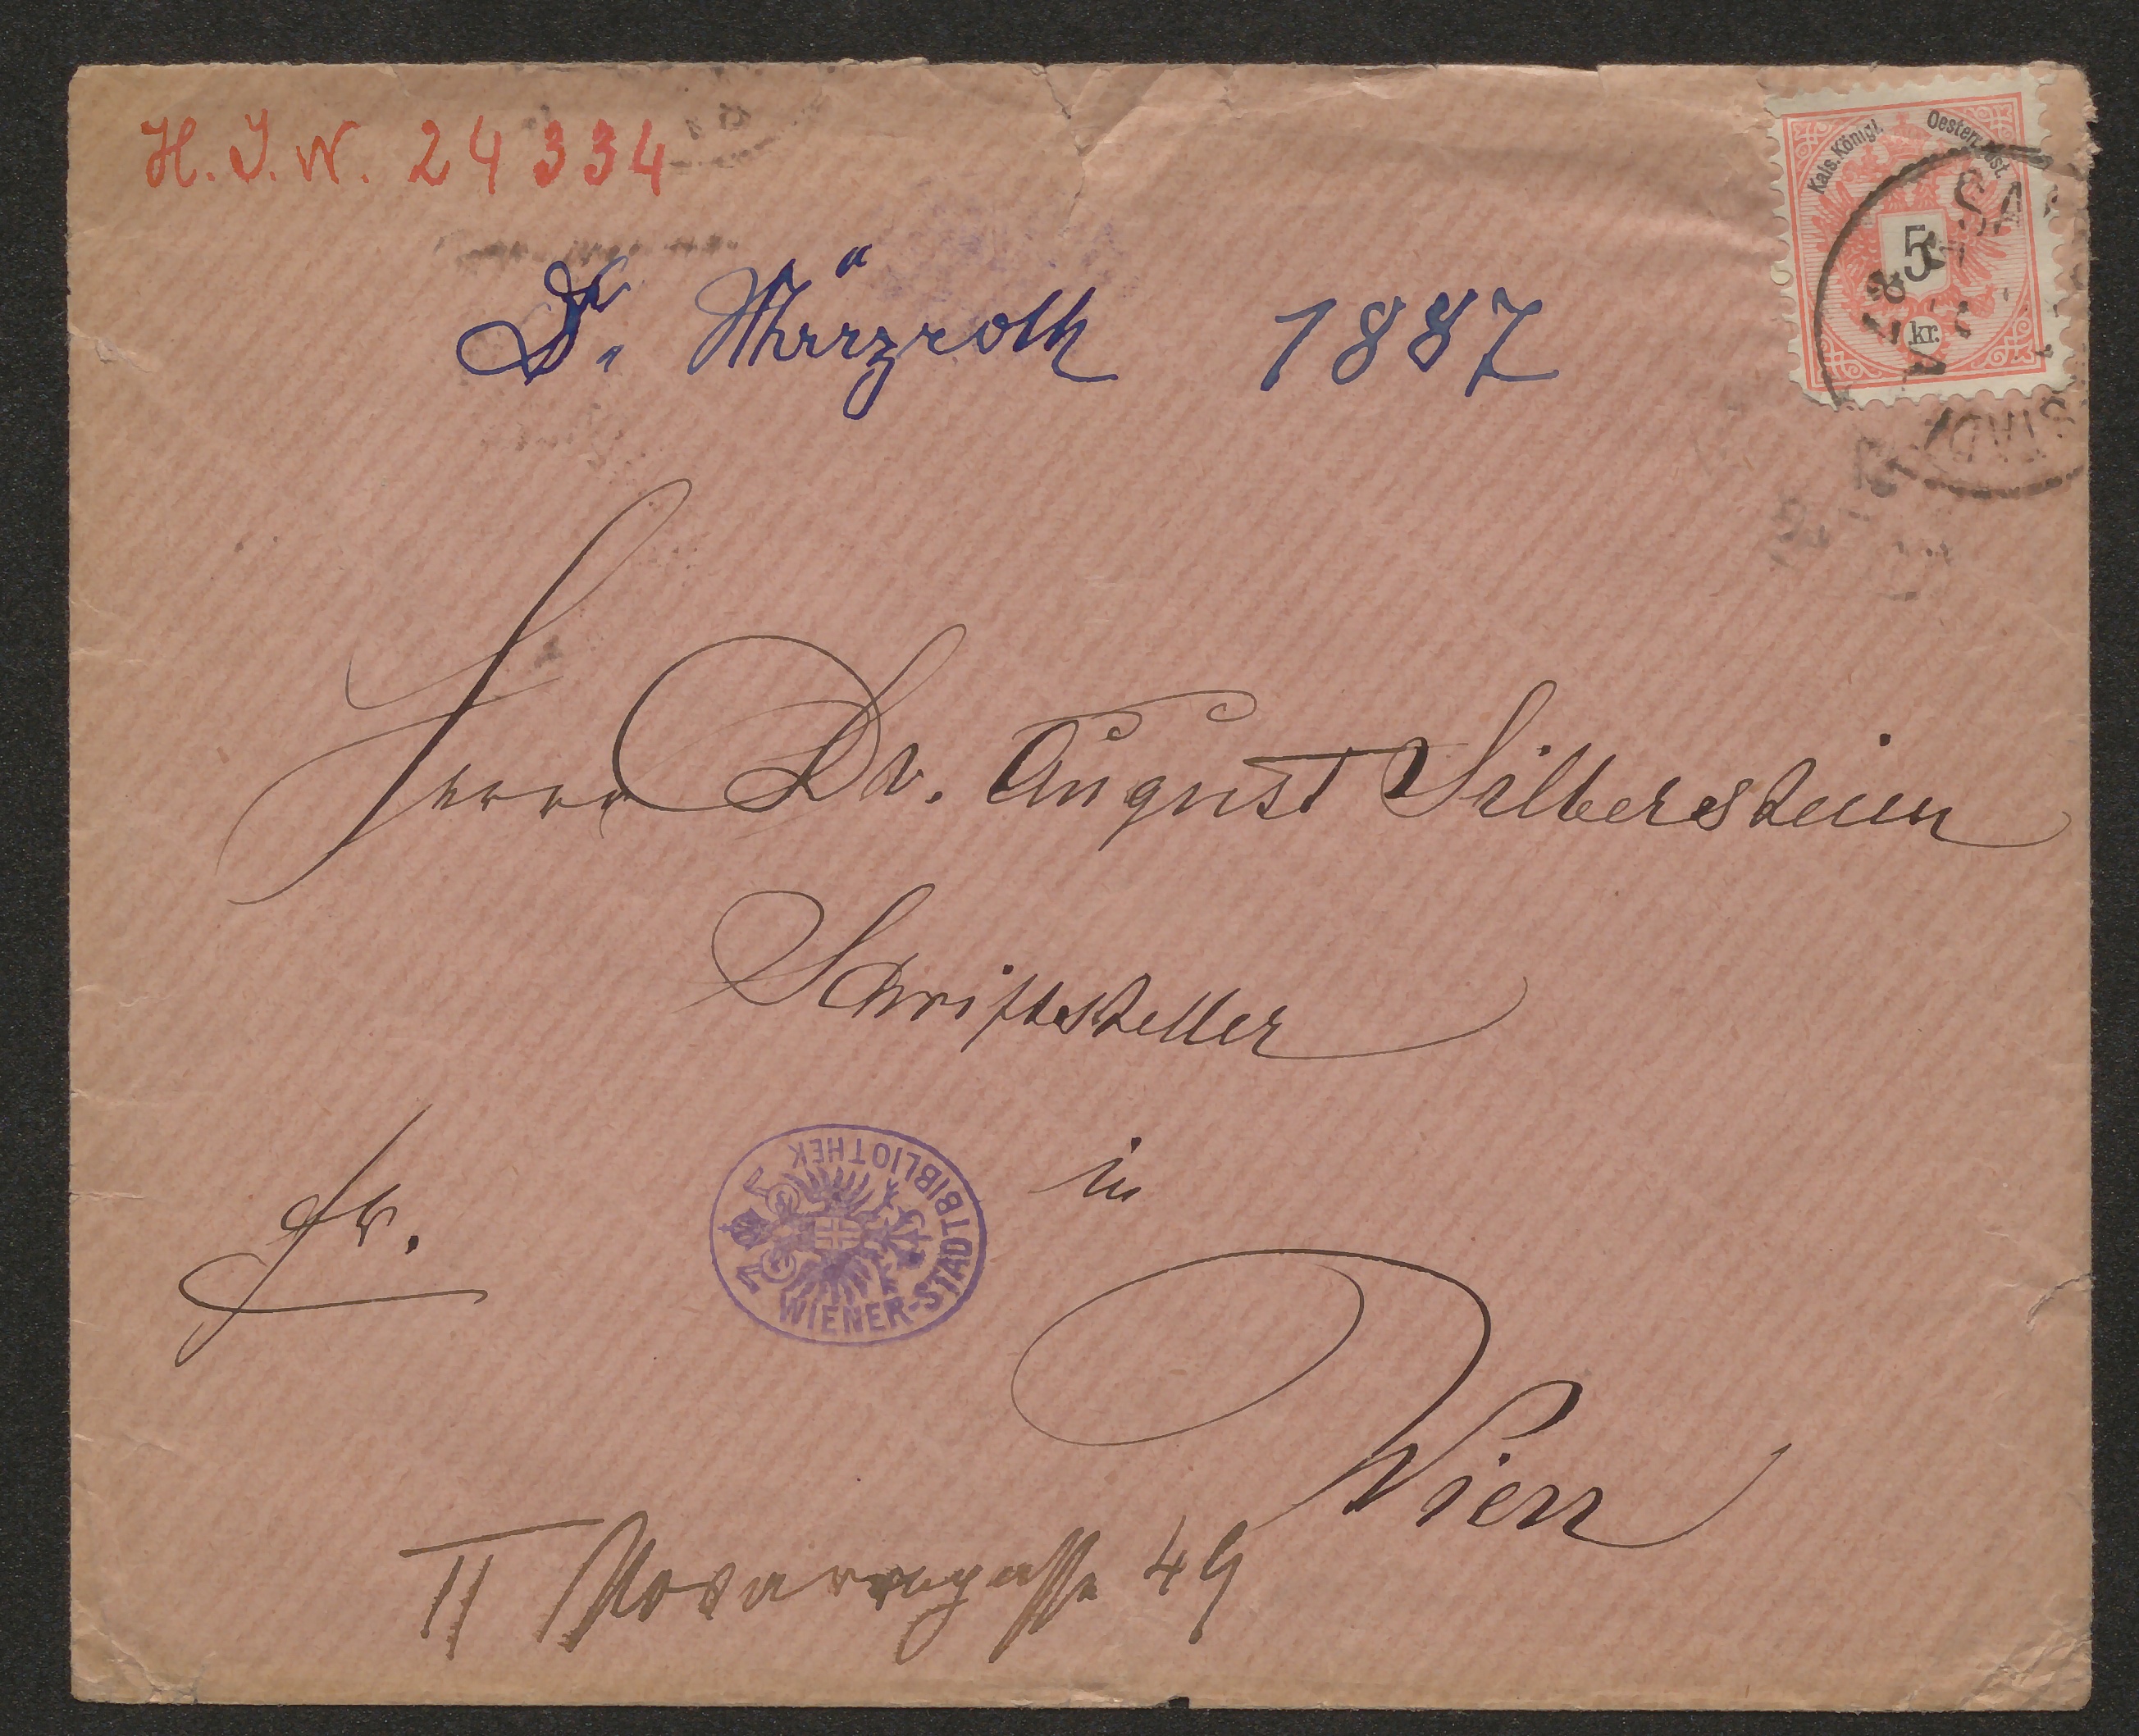 H. I. N. 24 334
Kais. Königl. Oesterr. Post.
5
kr.
Dr. Märzroth 1887
Herrn Dr. August Silberstein
Schriftsteller
fr.
in
WIENER-STADTBIBLIOTHEK
Wien
II Novaragasse 49